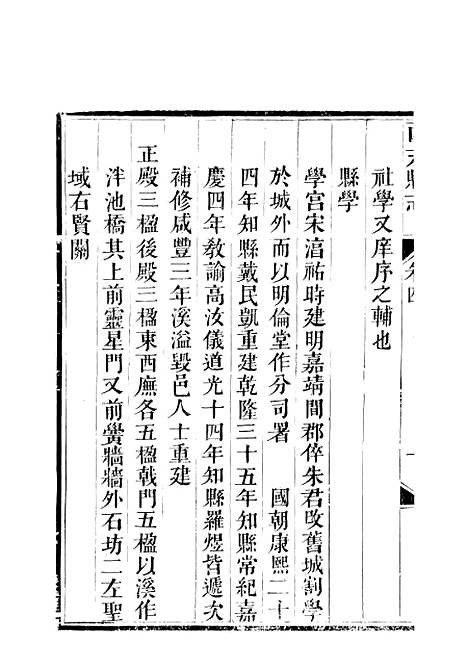 社學又庠序之輔也
縣學
學宫宋湻祐時建明嘉靖間郡倅朱君改舊城割學
於城外而以明倫堂作分司署　國朝康熙二十
四年知縣戴民凱重建乾隆三十五年知縣常紀嘉
慶四年教諭高汝儀道光十四年知縣羅煜皆遞次
補修咸豐三年溪溢毀邑人士重建
正殿三楹後殿三楹東西廡各五楹戟門五楹以溪作
泮池橋其上前靈星門又前黌牆牆外石坊二左聖
域右賢關